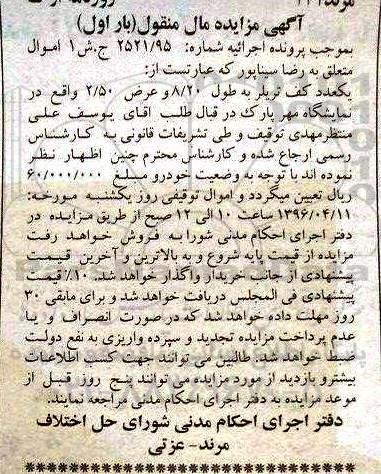 آگهی مزایده مال منقول(بار اول)
بموجب پرونده اجرائیه شماره: ۲۵۲۱/۹۵ ج.ش۱ اموال
متعلق به رضا سیناپور که عبارتست از:
یکعدد کف تریلر به طول ۸/۲۰ و عرض ۲/۵۰ واقع در
نمایشگاه مهر پارک در قبال طلب آقای یوسف علی
منتظرمهدی توقیف و طی تشریفات قانونی به کارشناس
رسمی ارجاع شده و کارشناس محترم چنین اظهار نظر
نموده اند با توجه به وضعیت خودرو مبلغ ۶۰/۰۰۰/۰۰۰
ریال تعیین میگردد و اموال توقیفی روز یکشنبه مورخه:
۱۳۹۶/۰۴/۱۱ ساعت ۱۰ الی ۱۲ صبح از طریق مزایده در
دفتر اجرای احکام مدنی شورا به فروش خواهد رفت
مزایده از قیمت پایه شروع و به بالاترین و آخرین قیمت
پیشنهادی از جانب خریدار واگذار خواهد شد. ۱۰٪ قیمت
پیشنهادی فی المجلس دریافت خواهد شد و برای مابقی ۳۰
روز مهلت داده خواهد شد که در صورت انصراف و یا
عدم پرداخت مزایده تجدید و سپرده واریزی به نفع دولت
ضبط خواهد شد. طالبین می توانند جهت کسب اطلاعات
بیشتر و بازدید از مورد مزایده می توانند پنج روز قبل از
موعد مزایده به دفتر اجرای احکام مدنی مراجعه نمایند.
دفتر اجرای احکام مدنی شورای حل اختلاف
مرند- عزتی